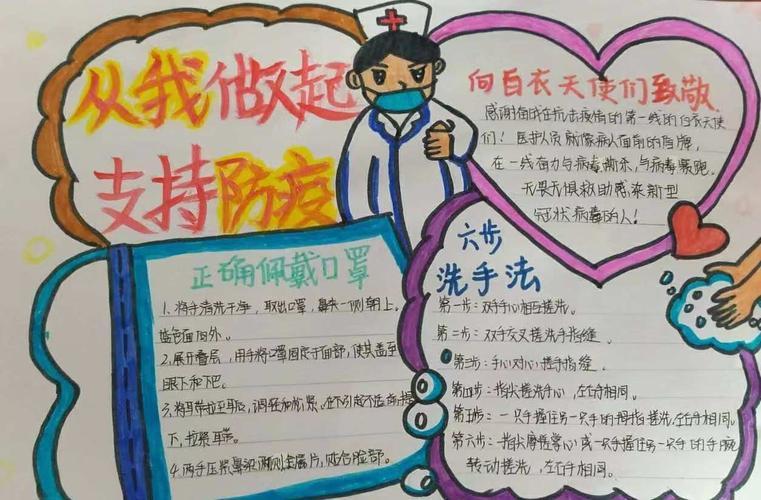 从我做起
支持防疫
向白衣天使们致敬
感谢奋战在抗击疫情的第一线的白衣天使
们！医护人员就像病人面前的盾牌，
在一线奋力与病毒厮杀，与病毒赛跑。
无畏无惧救助感染新型
冠状病毒的人！
正确佩戴口罩
1、将手清洗干净，取出口罩，鼻夹一侧朝上。
蓝色面向外。
2.展开叠层，用手将口罩固定于面部，使其盖至
眼下和下巴。
3、将耳带拉至耳后，调
下，拉紧耳带。
4.两手压紧鼻梁 金属片，贴合脸部。
六步
洗手法
第一步：双手手心相互搓洗。
第二步：双手交叉搓洗手指缝。
第三步：手心对心搓手指缝。
第四步：指尖搓洗手心，左右手相同。
第五步：一只手握住另一只手的拇指搓洗，左右手相同。
第六步：指尖摩搓掌心或一只手握住另一只手的手腕
转动搓洗，左右手相同。